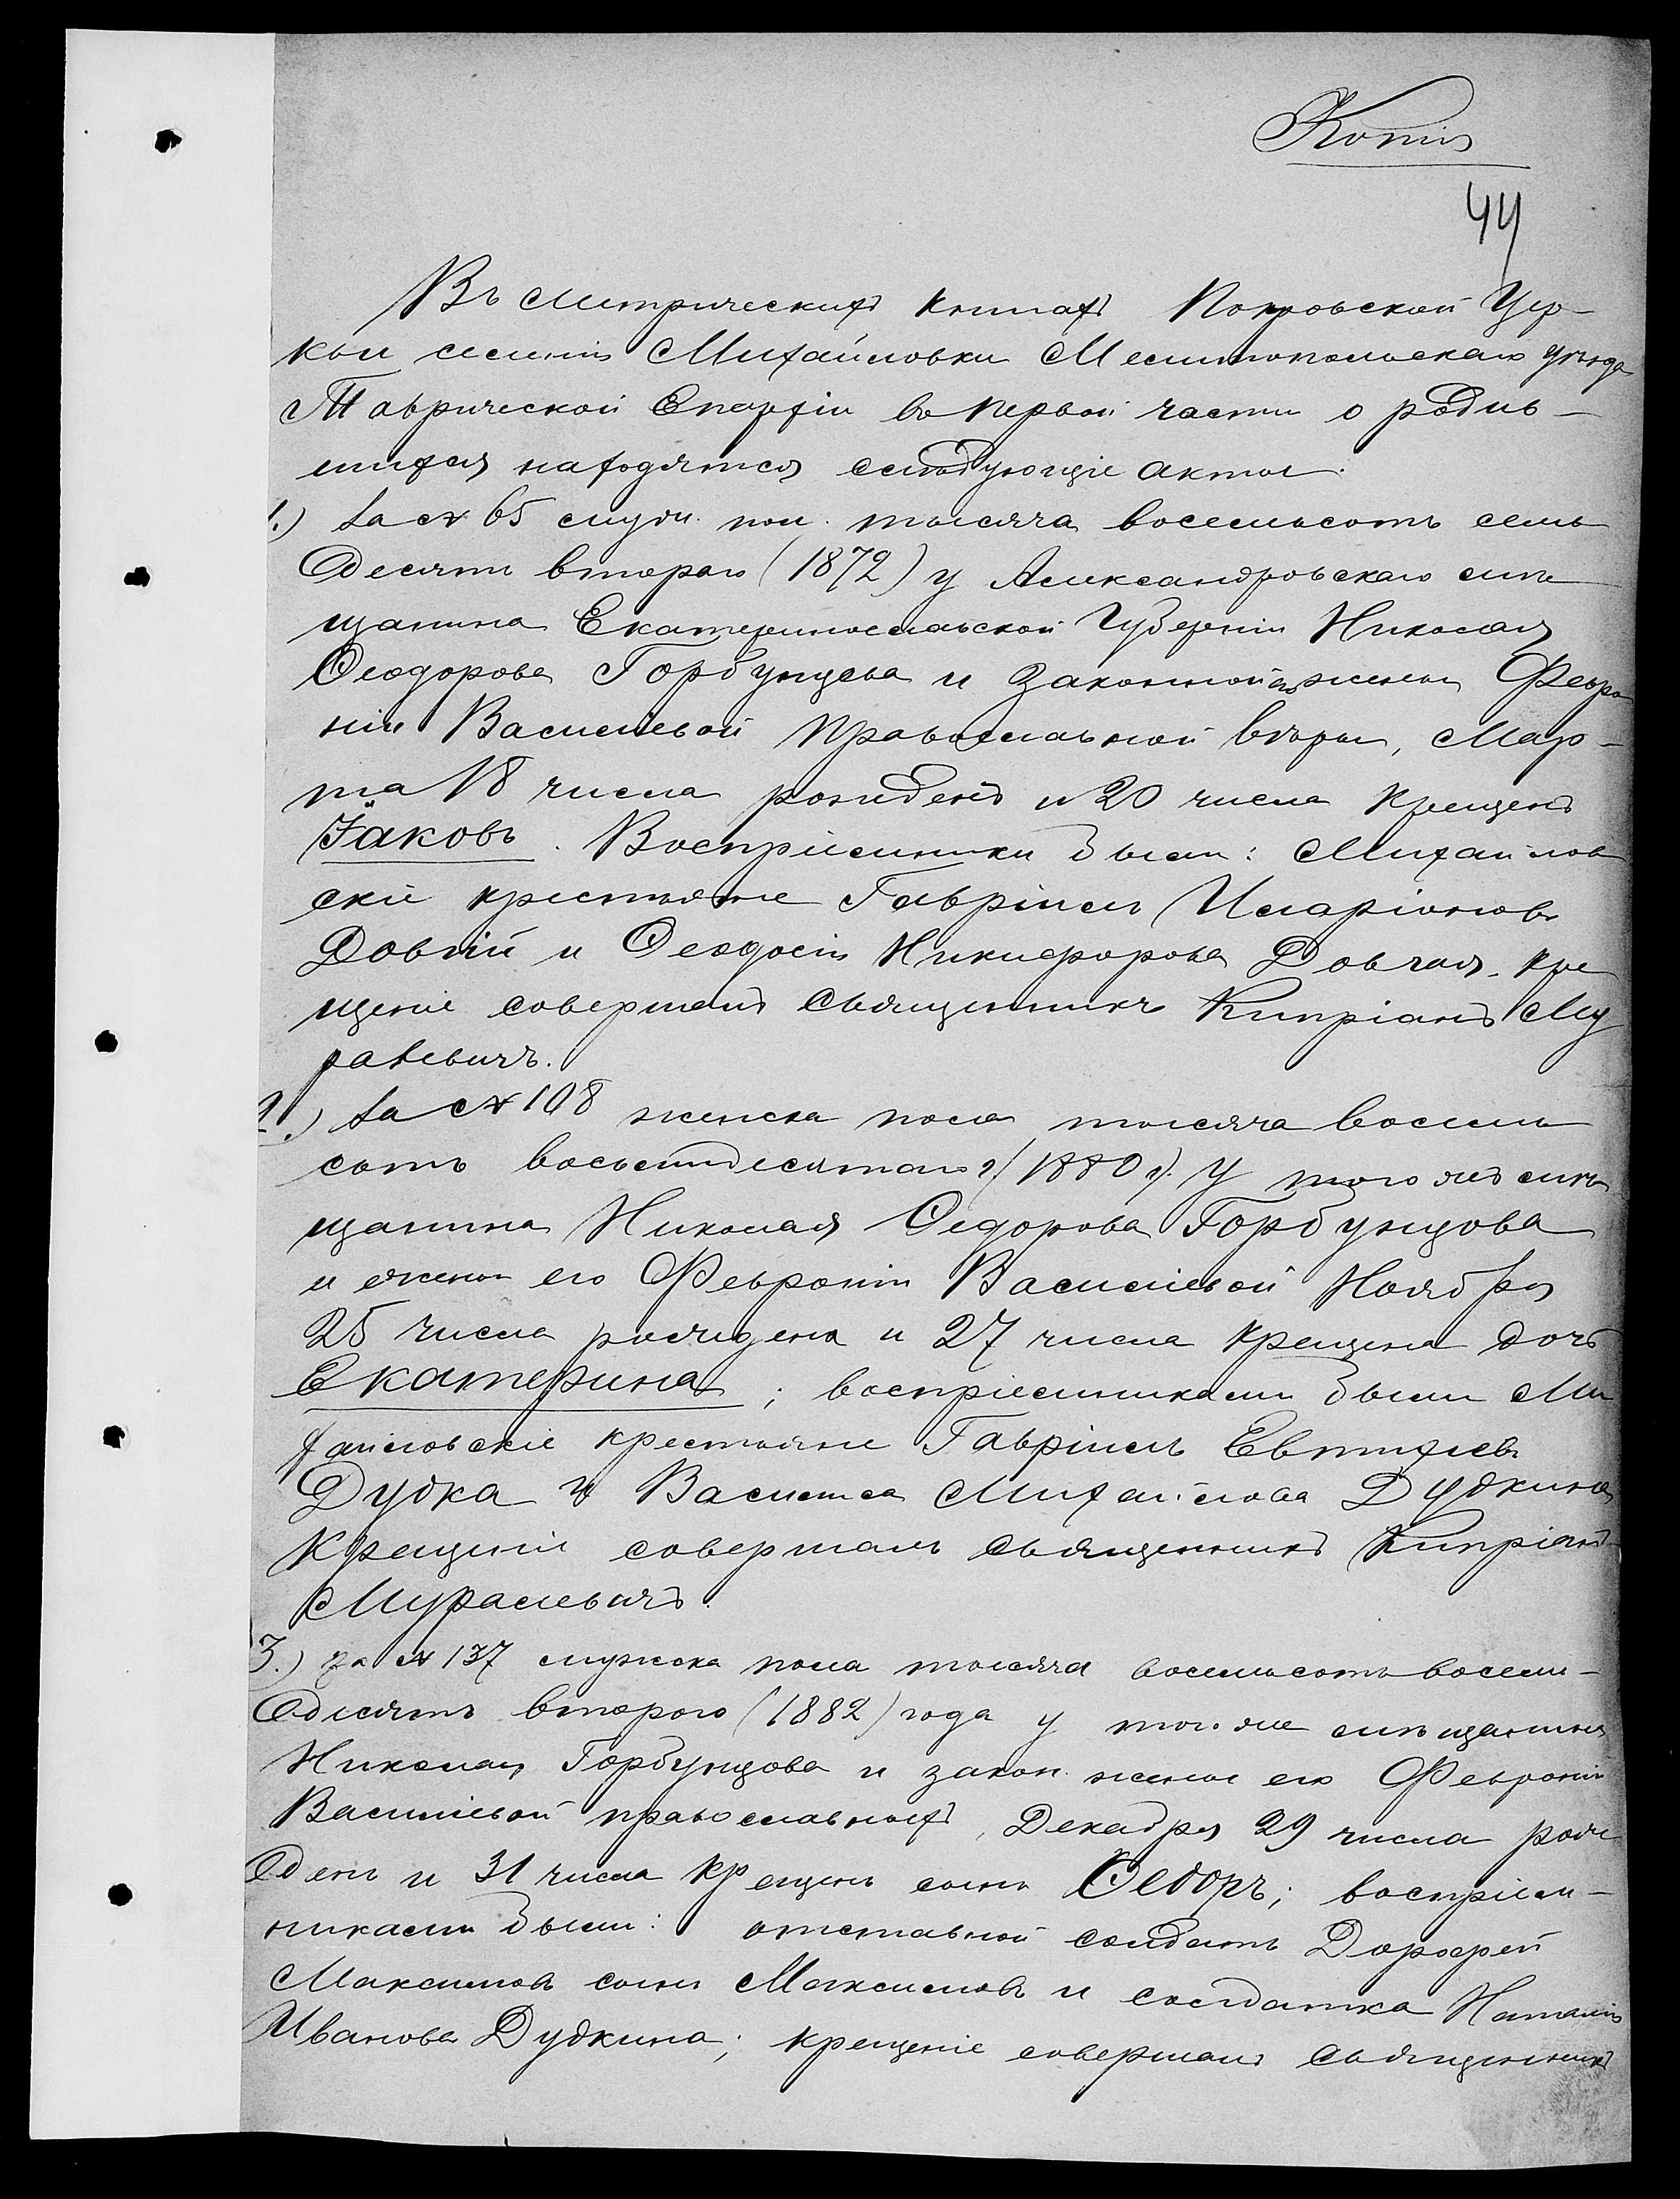 Копія
44
Въ метрическихъ книгахъ Покровской Цер-
кви селенія Михайловки Мелитопольскаго уѣзда
Таврической Епархіи въ первой части о родив-
шихся находятся слѣдующіе акты:
1.) За № 65 муж. пол. тысяча восемьсотъ семь
десятъ втораго (1872) у Александровскаго мѣ
щанина Екатеринославской Губерніи Николая
Ѳеодорова Горбунцова и законной его жены Февро
ніи Васильевой православной вѣры, Мар-
та 18 числа рожденъ и 20 числа крещенъ
Іаковъ. Воспріемники были: Михайлов
скіе крестьяне Гавріилъ Иларіоновъ
Довгій и Ѳеодосія Никифорова Довгая. Кре
щеніе совершалъ Священникъ Кипріанъ Му
ралевичъ.
2.) За № 108 женска пола тысяча восемь
сотъ восьмидесятаго г. (1880 г). У того же мѣ
щанина Николая Ѳедорова Горбунцова
и жены его Февроніи Васильевой Ноября
25 числа рождена и 27 числа крещена дочь
Екатерина; воспріемниками были Ми
хайловскіе крестьяне Гавріилъ Евтихіевъ
Дудка и Василиса Михайлова Дудкина
Крещеніе совершалъ Священникъ Кипріанъ
Муралевичъ.
3.) За № 137 мужска пола тысяча восемьсотъ восемь-
десятъ второго (1882) года у того же мѣщанина
Николая Горбунцова и закон. жены его Февроніи
Васильевой православныхъ, Декабря 29 числа рож
денъ и 31 числа крещенъ сынъ Ѳедоръ; воспріем-
никами были: отставной солдатъ Дорофей
Максимовъ сынъ Максимовъ и солдатка Наталія
Иванова Дудкина; крещеніе совершалъ Священникъ